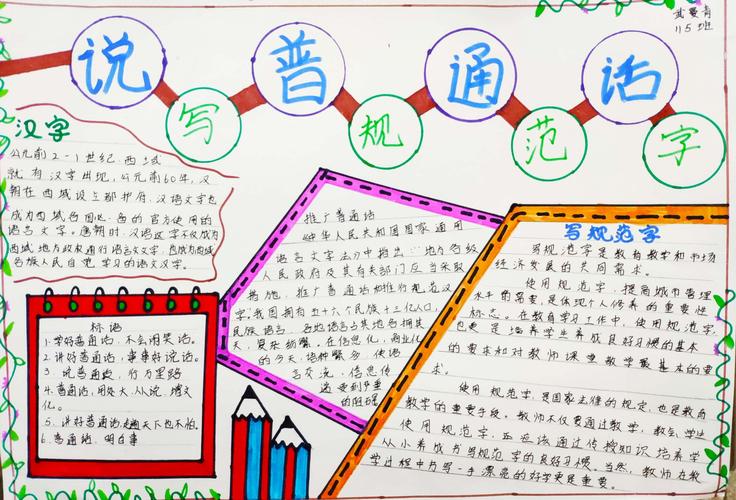 115班
说普通话
写规范字
汉字
公元前2-1世纪.西域
就有汉字出现,公元前60年,汉
朝在西域设立都护府.汉语文字也
成为西域各国
官方使用的
语言文字。唐朝时.汉语汉字不仅成为
西域地方政权通行语言文字,也成为西域
各族人民自觉学习的语文汉字。
标语
1.学好普通话,不会闹笑话。
2.讲好普通话,事事好说话。
3.说普通话,行万里路
4.普通话,用处大,人人说,增文
化。
5.讲好普通话走遍天下也不怕。
6.普通话,明白事
推广普通话
《中华人民共和国国家通用
语言文字法》中指出:"地方各级
人民政府及其有关部门应当采取
措施,推广普通话和推行规范汉
字.我国拥有五十六个民族十三亿人口,
民族语言,各地语言与其地名拥其
大,复杂纷繁。在信息化,商业化
的今天,语种繁多,使语
言交流,信息传
递受到严重
的阻碍
写规范字
写规范字是教育教学和市场
经济发展的共同需求。
使用规范字,提高城市管理
水平的需要,是体现个人修养的重要性
标志。在教育学习工作中,使用规范字,
也更是培养学生养成良好习惯的基本
的要求和对教师课堂教学最基本的要
求.
使用规范字,是国家法律的规定,也是教育
教学的重要手段。教师不仅要通过教学,教会学生
使用规范字,更应该通过传授知识培养学
从小养成书写规范字的良好习惯。当然,教师在教
学过程中书写一手漂亮的好字更是重要。